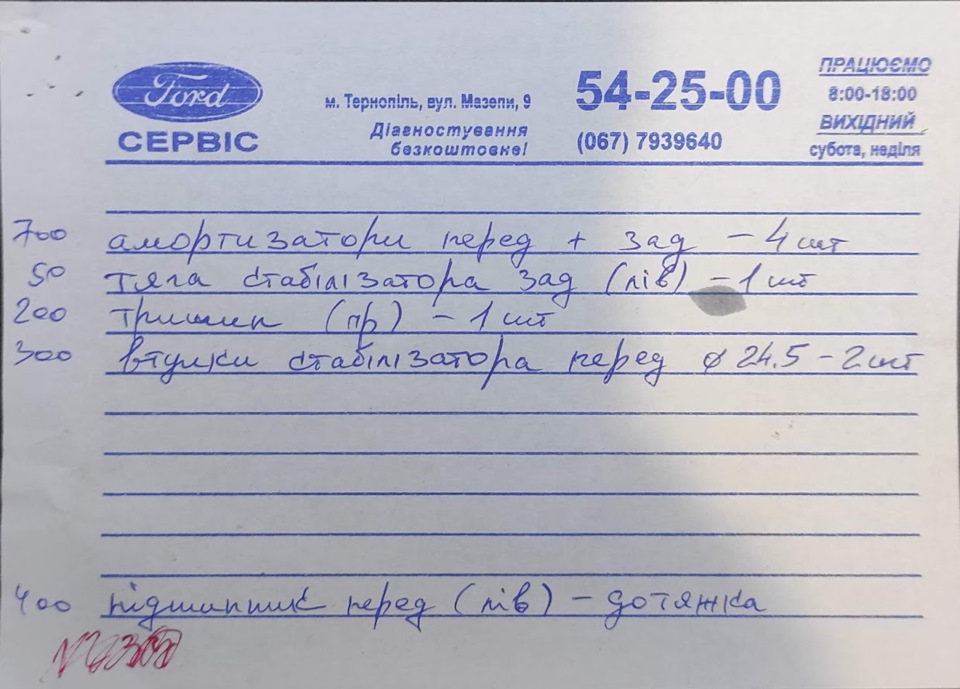 Ford
СЕРВІС
м. Тернопіль, вул. Мазепи, 9
Діагностування
безкоштовне!
54-25-00
(067) 7939640
ПРАЦЮЄМО
8:00-18:00
ВИХІДНИЙ
субота, неділя
700 амортизатори перед + зад - 4 шт
50 тяга стабілізатора зад (лів) - 1 шт
200 (пр) - 1 шт
300 втулки стабілізатора перед ⌀ 24.5 - 2 шт
400 підшипник перед (лів) - дотяжка